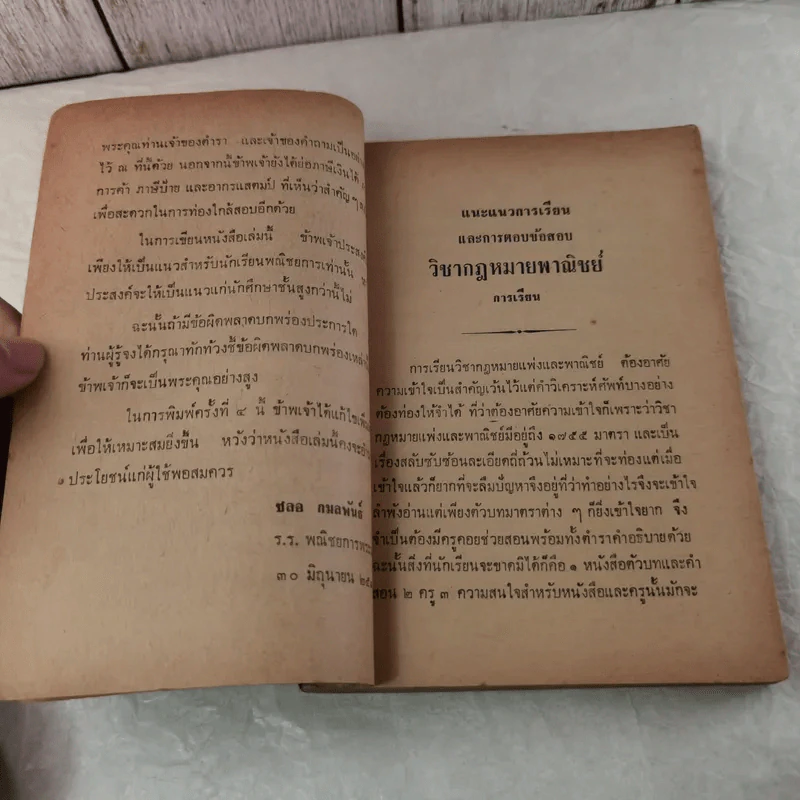 พระคุณท่านเจ้าของตำรา และเจ้าของคำถามเป็นอย่าง
ไว้ ณ ที่นี้ด้วย นอกจากนี้ข้าพเจ้ายังได้ย่อภาษีเงินได้
การค้า ภาษีป้าย และอากรแสตมป์ ที่เห็นว่าสำคัญ ๆ
เพื่อสะดวกในการท่องใกล้สอบอีกด้วย
ในการเขียนหนังสือเล่มนี้ ข้าพเจ้าประสงค์
เพียงให้เป็นแนวสำหรับนักเรียนพณิชยการเท่านั้น
ประสงค์จะให้เป็นแนวแก่นักศึกษาชั้นสูงกว่านี้ไม่
ฉะนั้นถ้ามีข้อผิดพลาดบกพร่องประการใด
ท่านผู้รู้จงได้กรุณาทักท้วงชี้ข้อผิดพลาดบกพร่องเหล่า
ข้าพเจ้าก็จะเป็นพระคุณอย่างสูง
ในการพิมพ์ครั้งที่ ๔ นี้ ข้าพเจ้าได้แก้ไข
เพื่อให้เหมาะสมยิ่งขึ้น หวังว่าหนังสือเล่มนี้คงจะ
ประโยชน์แก่ผู้ใช้พอสมควร
ชลอ กมลพันธ์
ร.ร. พณิชยการพระ
๓๐ มิถุนายน ๒๕
แนะแนวการเรียน
และการตอบข้อสอบ
วิชากฎหมายพาณิชย์
การเรียน
การเรียนวิชากฎหมายแพ่งและพาณิชย์ ต้องอาศัย
ความเข้าใจเป็นสำคัญเว้นไว้แต่คำวิเคราะห์ศัพท์บางอย่าง
ต้องท่องให้จำได้ ที่ว่าต้องอาศัยความเข้าใจก็เพราะว่าวิชา
กฎหมายแพ่งและพาณิชย์มีอยู่ถึง ๑๗๕๕ มาตรา และเป็น
เรื่องสลับซับซ้อนละเอียดถี่ถ้วนไม่เหมาะที่จะท่องแต่เมื่อ
เข้าใจแล้วก็ยากที่จะลืมปัญหาจึงอยู่ที่ว่าทำอย่างไรจึงจะเข้าใจ
ลำพังอ่านแต่เพียงตัวบทมาตราต่าง ๆ ก็ยิ่งเข้าใจยาก จึง
จำเป็นต้องมีครูคอยช่วยสอนพร้อมทั้งตำราคำอธิบายด้วย
ฉะนั้นสิ่งที่นักเรียนจะขาดมิได้ก็คือ ๑ หนังสือตัวบทและคำ
สอน ๒ ครู ๓ ความสนใจสำหรับหนังสือและครูนั้นมักจะ